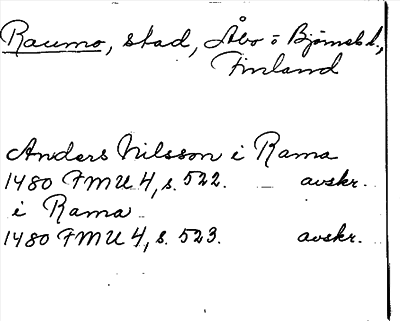 Raumo, stad, Åbo o Björneb. l.,
Finland
Anders Nilsson i Rama
1480 FMU 4, s. 522. avskr.
i Rama
1480 FMU 4, s. 523. avskr.